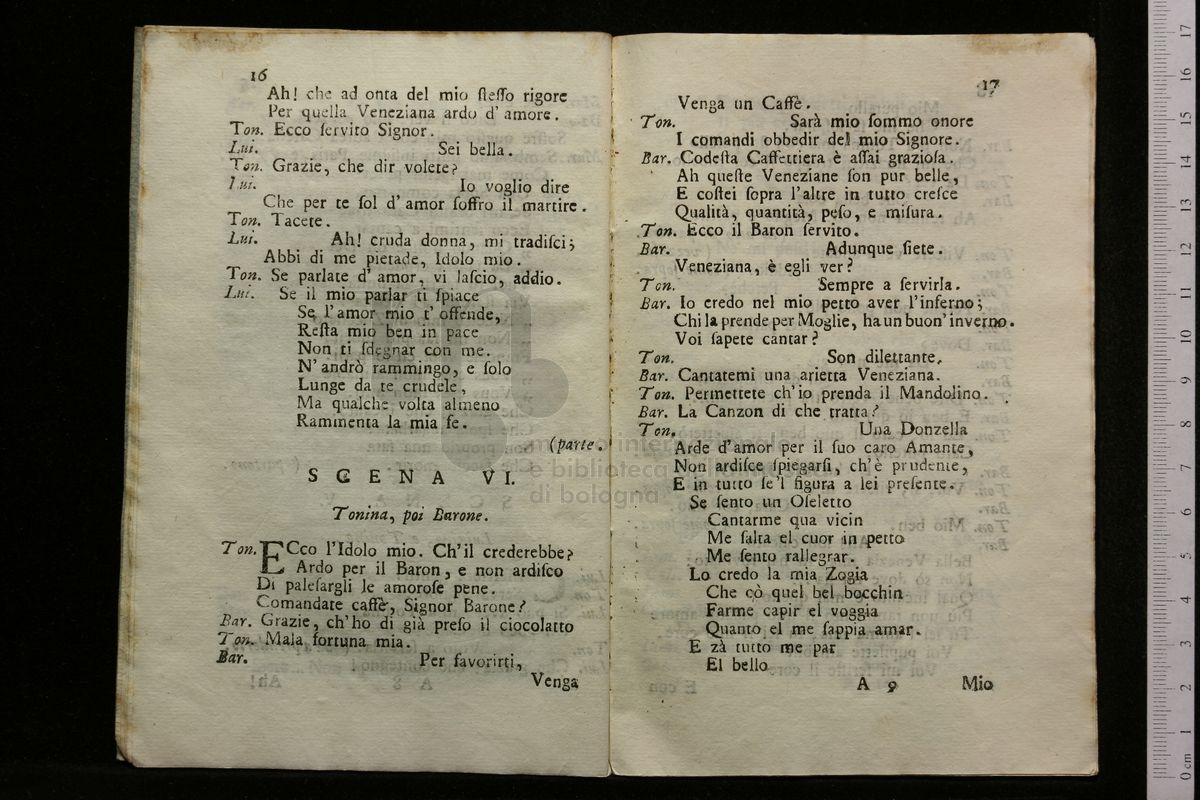 16
Ah! che ad onta del mio ſteſſo rigore
Per quella Veneziana ardo d'amore.
Ton. Ecco ſervito Signor.
Lui. Sei bella.
Ton. Grazie, che dir volete?
Lui. Io voglio dire
Che per te ſol d'amor ſoffro il martire.
Ton. Tacete.
Lui. Ah! cruda donna, mi tradiſci;
Abbi di me pietade, Idolo mio.
Ton. Se parlate d'amor, vi laſcio, addio.
Lui. Se il mio parlar ti ſpiace
Se l'amor mio t'offende,
Reſta mio ben in pace
Non ti ſdegnar con me.
N'andrò rammingo, e ſolo
Lunge da te crudele,
Ma qualche volta almeno
Rammenta la mia fe.
(parte.
SCENA VI.
Tonina, poi Barone.
Ton. ECco l'Idolo mio. Ch'il crederebbe?
Ardo per il Baron, e non ardiſco
Di paleſargli le amoroſe pene.
Comandate caffè, Signor Barone?
Bar. Grazie, ch'ho di già preſo il ciocolatto
Ton. Mala fortuna mia.
Bar. Per favorirti,
Venga
17
Venga un Caffè.
Ton. Sarà mio ſommo onore
I comandi obbedir del mio Signore.
Bar. Codeſta Caffettiera è aſſai grazioſa.
Ah queſte Veneziane ſon pur belle,
E coſtei ſopra l'altre in tutto creſce
Qualità, quantità, peſo, e miſura.
Ton. Ecco il Baron ſervito.
Bar. Adunque ſiete.
Veneziana, è egli ver?
Ton. Sempre a ſervirla.
Bar. Io credo nel mio petto aver l'inferno;
Chi la prende per Moglie, ha un buon'inverno.
Voi ſapete cantar?
Ton. Son dilettante.
Bar. Cantatemi una arietta Veneziana.
Ton. Permettete ch'io prenda il Mandolino.
Bar. La Canzon di che tratta?
Ton. Una Donzella
Arde d'amor per il ſuo caro Amante,
Non ardiſce ſpiegarſi, ch'è prudente,
E in tutto ſe'l figura a lei preſente.
Se ſento un Oſeletto
Cantarme qua vicin
Me ſalta el cuor in petto
Me ſento rallegrar.
Lo credo la mia Zogia
Che cò quel bel bocchin
Farme capir el voggia
Quanto el me ſappia amar.
E zà tutto me par
El bello
A 9 Mio
museo internazionale
e biblioteca della musica
di bologna